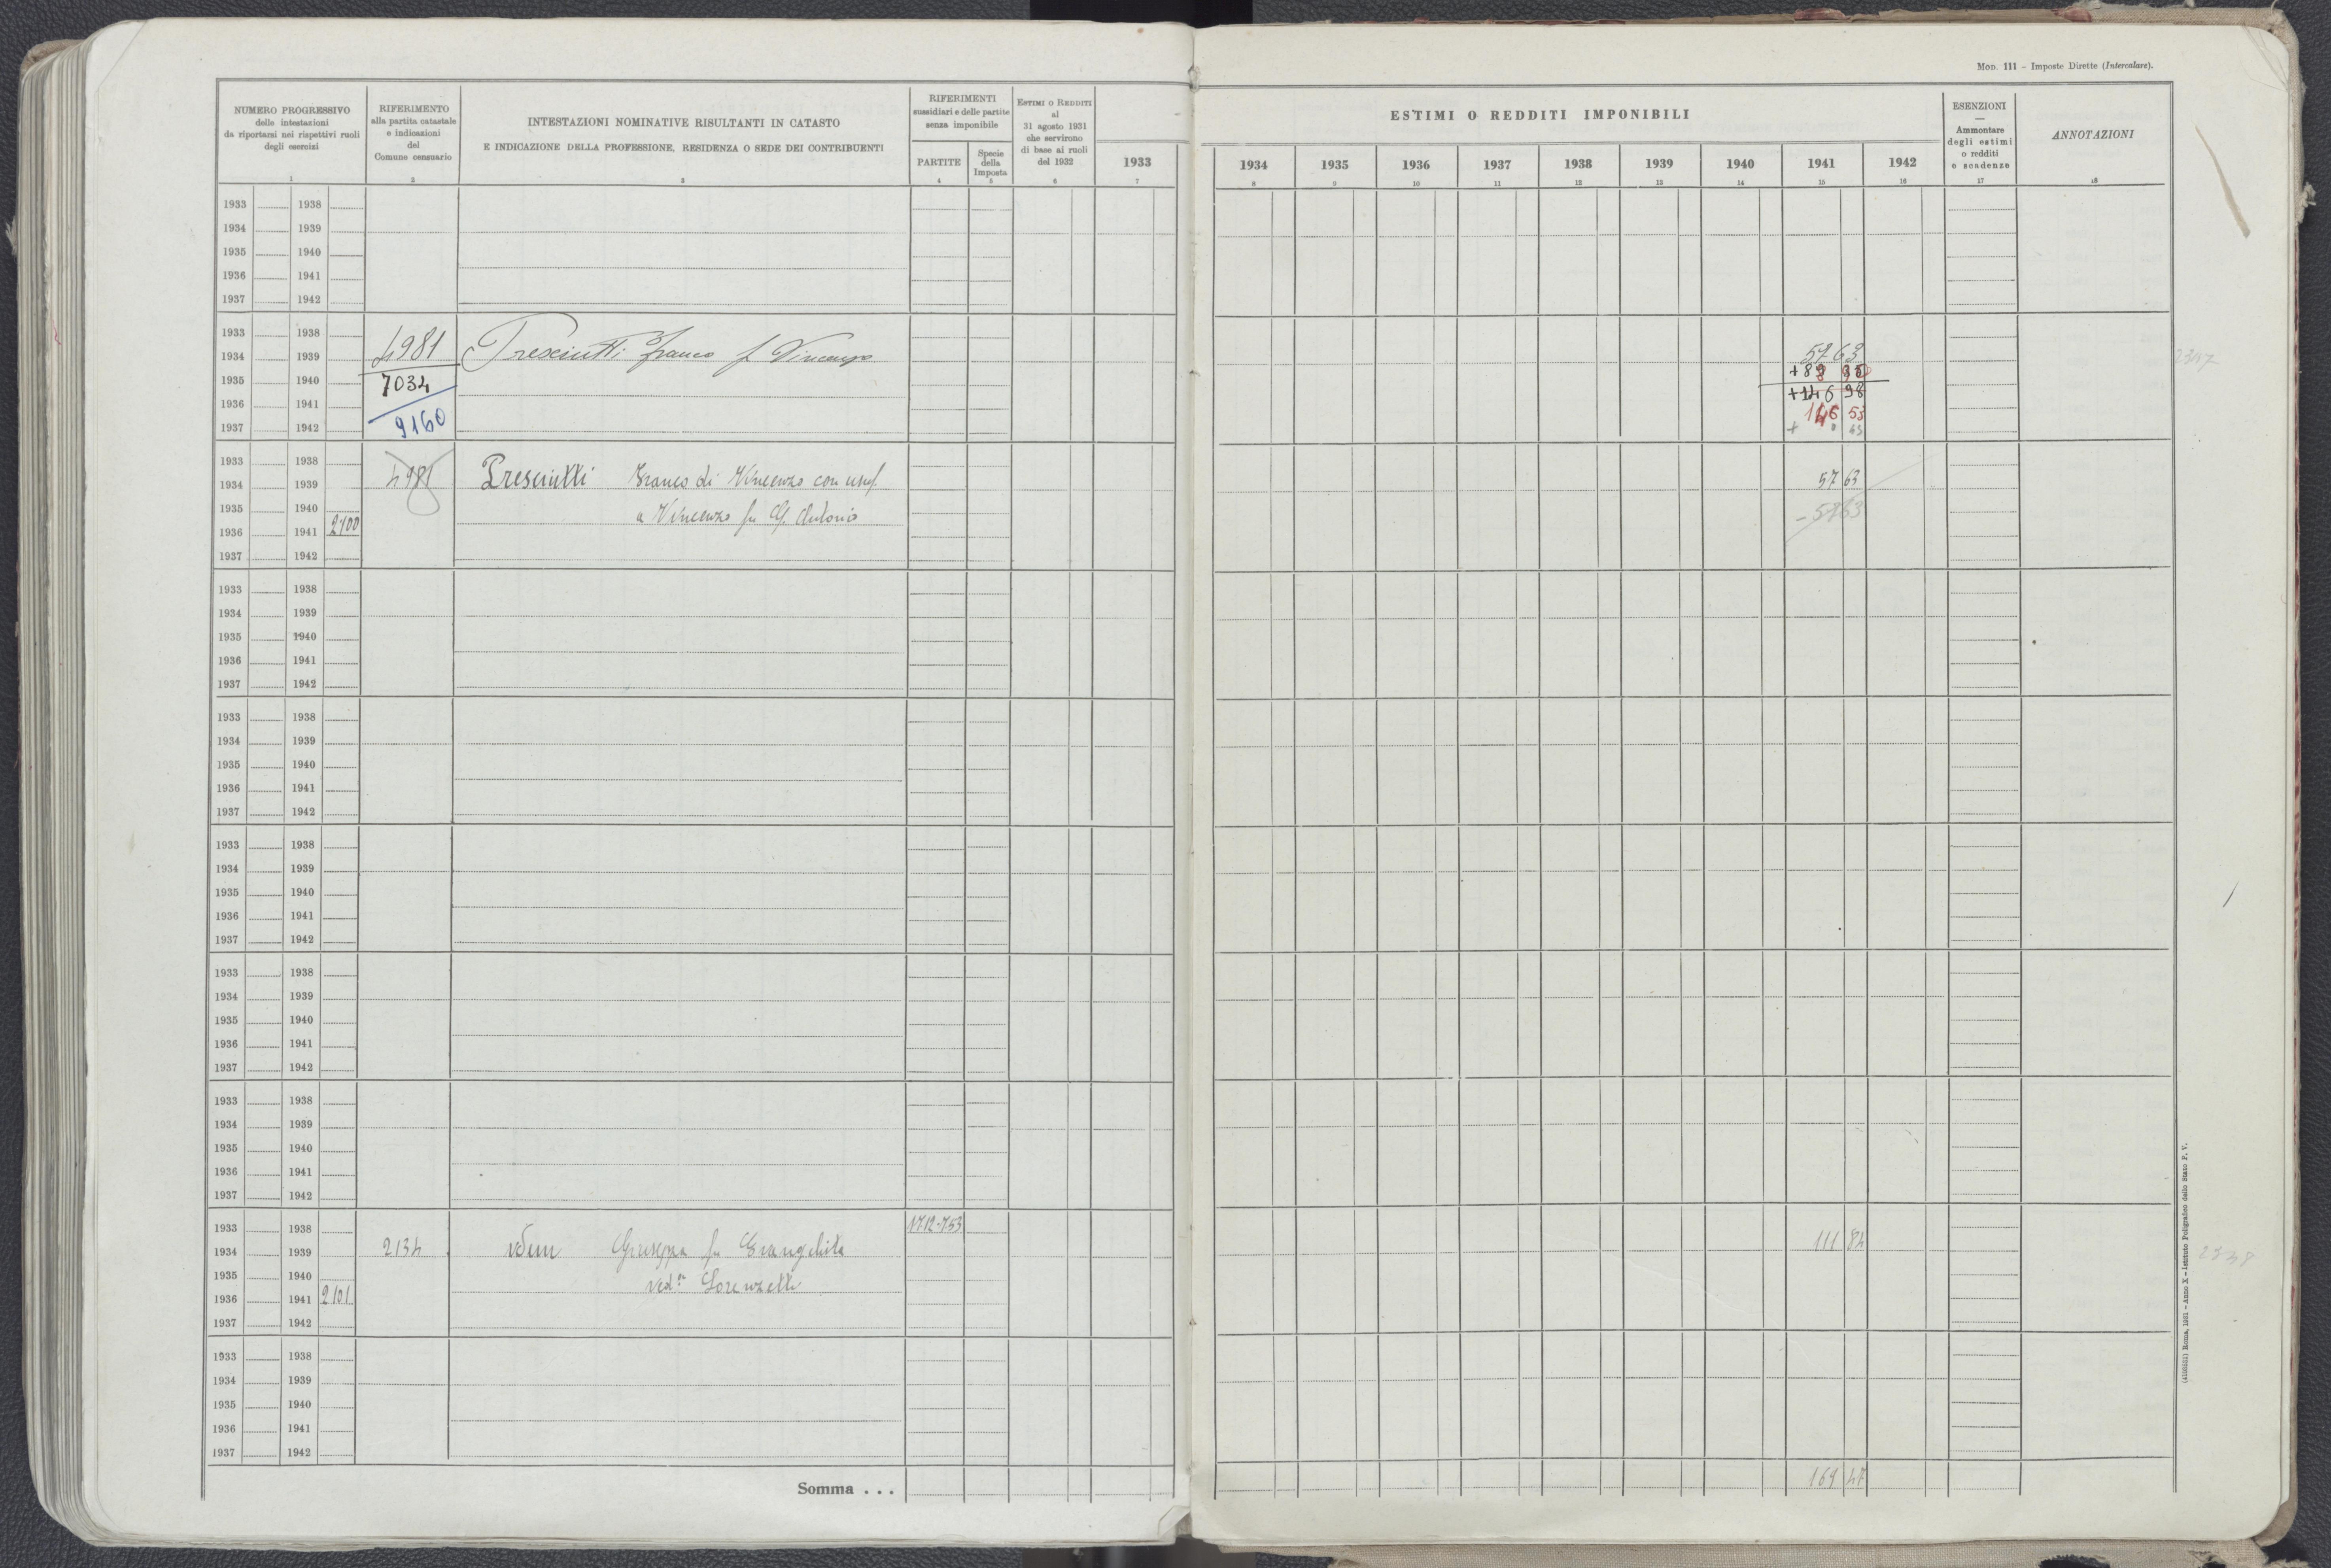 Mod. 111 - Imposte Dirette (Intercalare).
NUMERO PROGRESSIVO
delle intestazioni
da riportarsi nei rispettivi ruoli
degli esercizi
1
RIFERIMENTO
alla partita catastale
e indicazioni
del
Comune censuario
2
INTESTAZIONI NOMINATIVE RISULTANTI IN CATASTO
E INDICAZIONE DELLA PROFESSIONE, RESIDENZA O SEDE DEI CONTRIBUENTI
3
RIFERIMENTI
sussidiari e delle partite
senza imponibile
PARTITE
4
Specie
della
Imposta
5
ESTIMI O REDDITI
al
31 agosto 1931
che servirono
di base ai ruoli
del 1932
6
ESTIMI O REDDITI IMPONIBILI
1933 1934 1935 1936 1937 1938 1939 1940 1941 1942
7 8 9 10 11 12 13 14 15 16
ESENZIONI
—
Ammontare
degli estimi
o redditi
e scadenze
17
ANNOTAZIONI
18
1933 1938
1934 1939
1935 1940
1936 1941
1937 1942
1933 1938
1934 1939 4981 Presciutti Franco f Vincenzo 57 63 2347
1935 1940 7034
1936 1941 +146 98
1937 1942 9160 146 53
1933 1938
1934 1939 4981 Presciutti Franco di Vincenzo con usuf. 57 63
1935 1940 a Vincenzo fu G. Antonio - 57 63
1936 1941 2100
1937 1942
1933 1938
1934 1939
1935 1940
1936 1941
1937 1942
1933 1938
1934 1939
1935 1940
1936 1941
1937 1942
1933 1938
1934 1939
1935 1940
1936 1941
1937 1942
1933 1938
1934 1939
1935 1940
1936 1941
1937 1942
1933 1938
1934 1939
1935 1940
1936 1941
1937 1942
1933 1938 1712-753
1934 1939 2134 idem Giuseppa fu Evangelista 111 84 2348
1935 1940 ved.a Lorenzetti
1936 1941 2101
1937 1942
1933 1938
1934 1939
1935 1940
1936 1941
1937 1942
Somma . . . 169 47
Roma, 1931 - Anno X - Istituto Poligrafico dello Stato P. V.